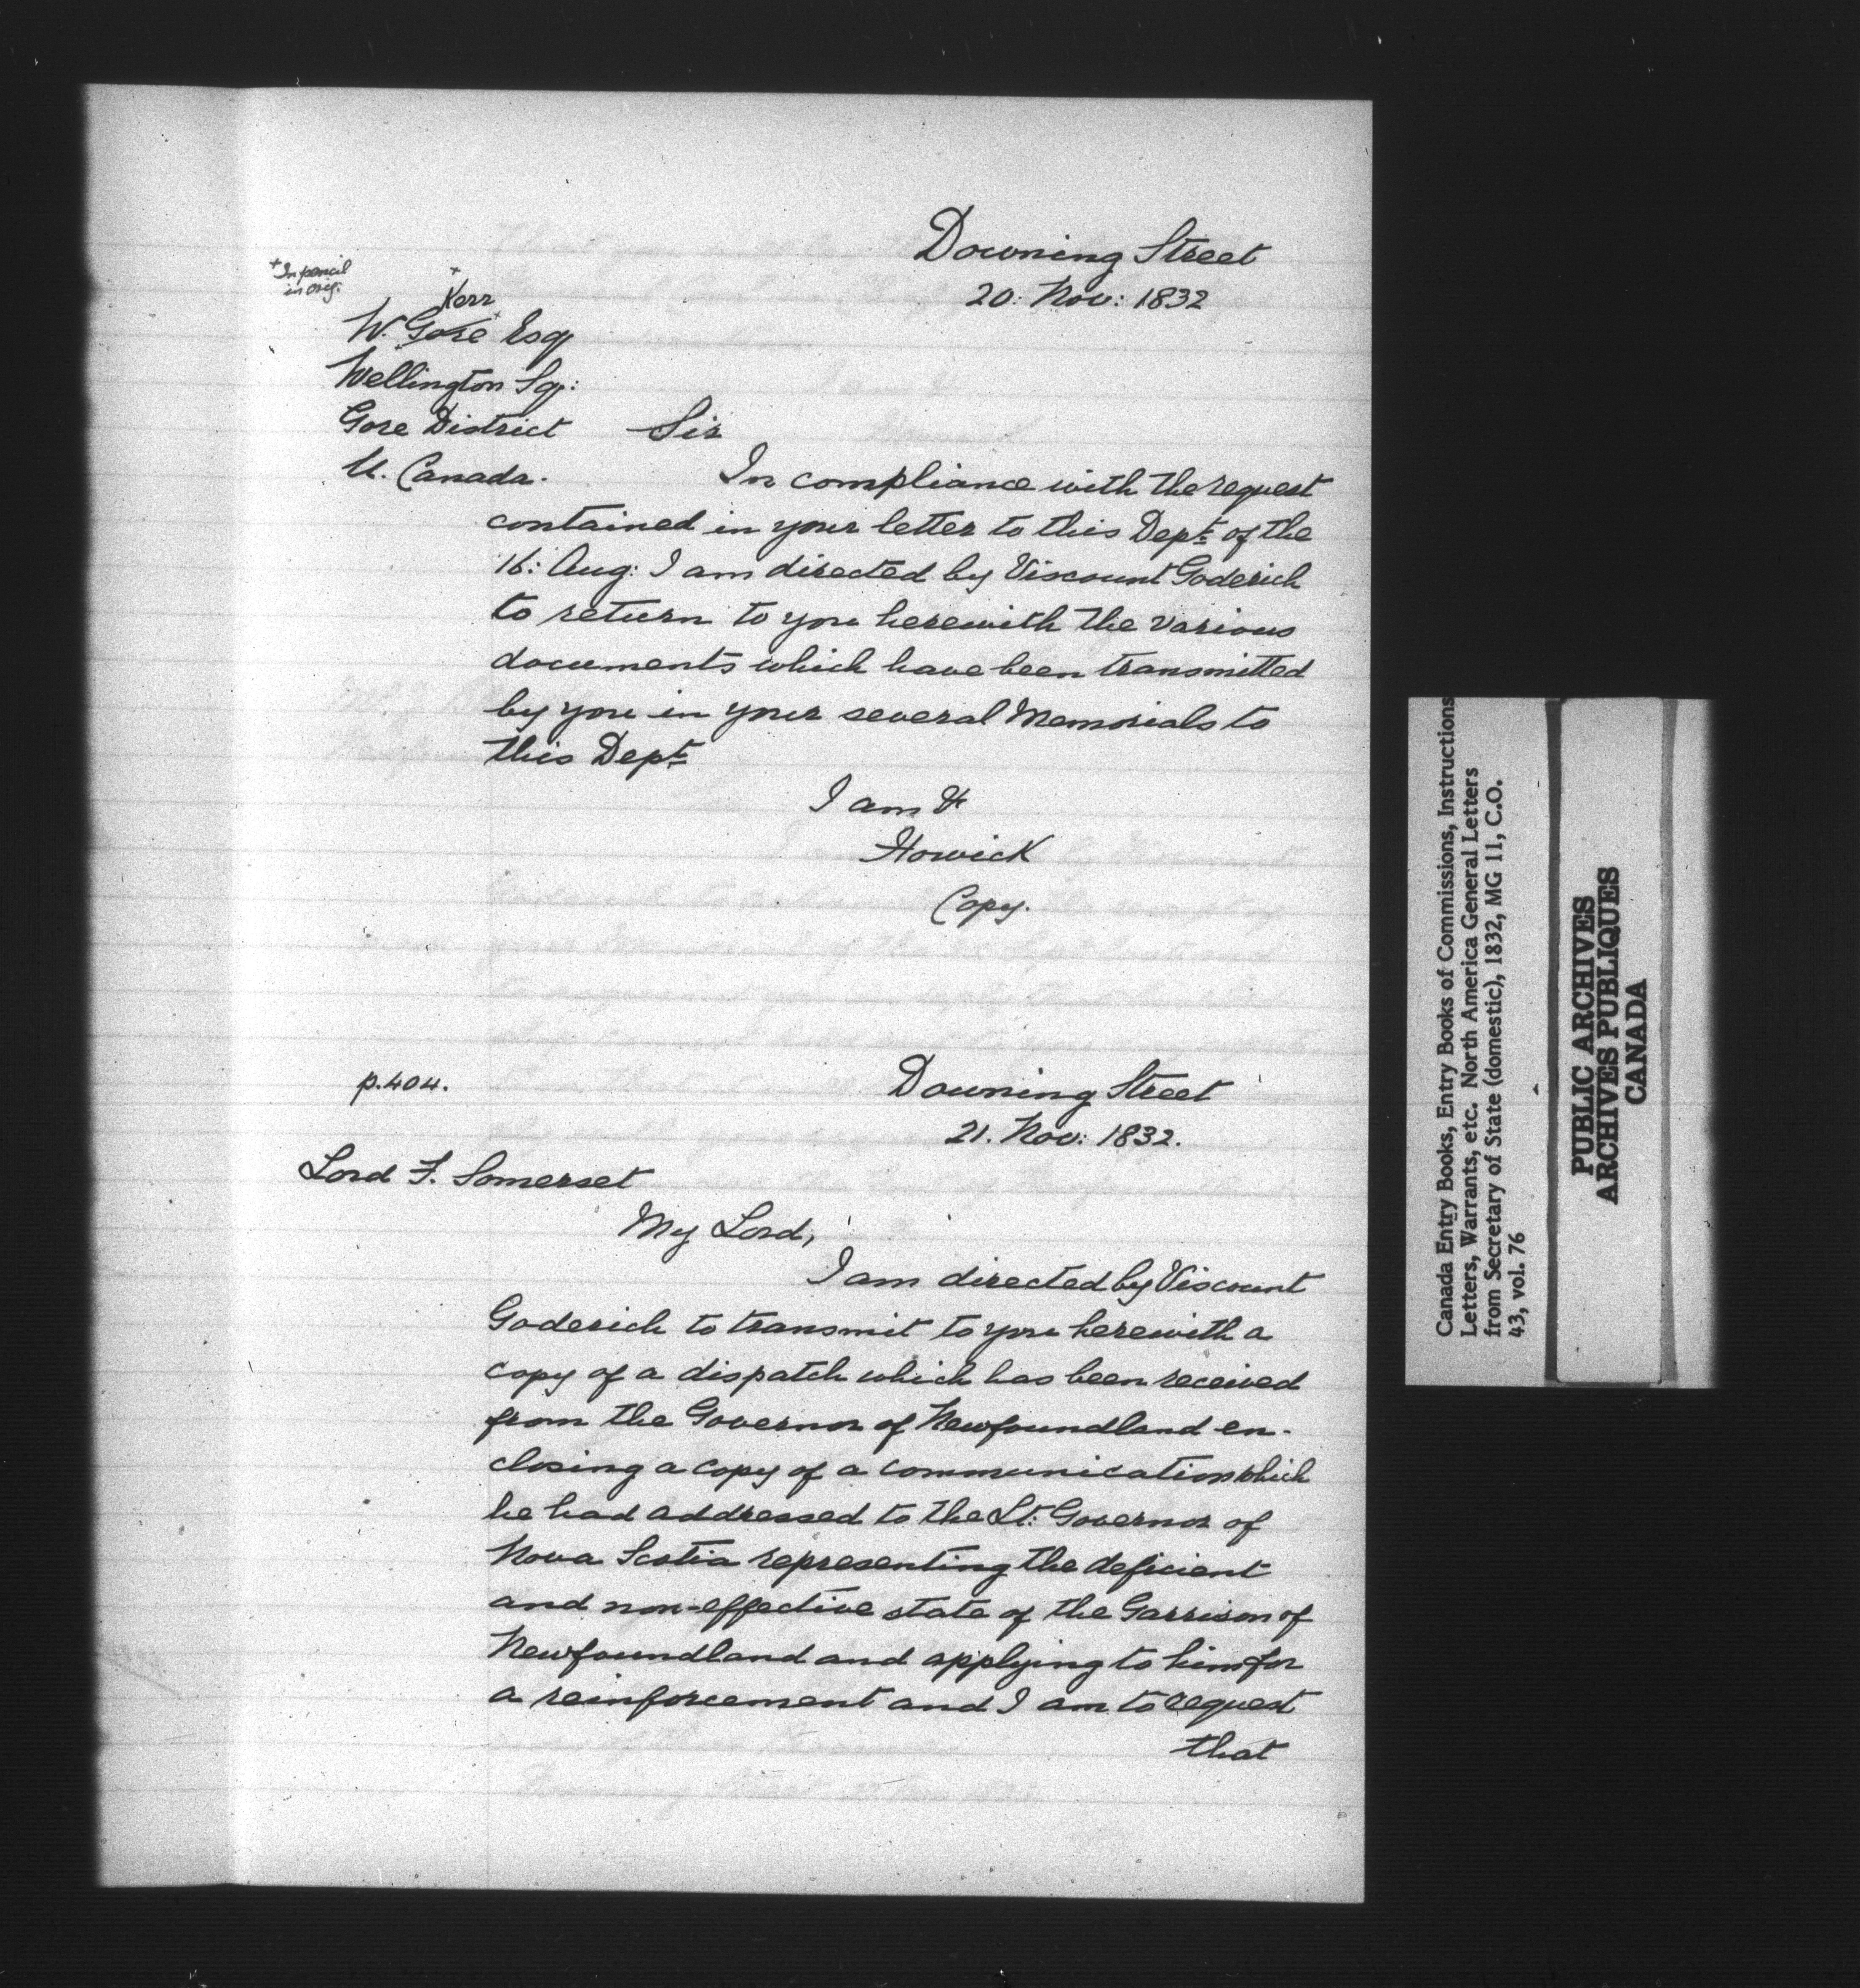 Downing Street
20: Nov: 1832
+ In pencil
in orig.
+
Kerr
W. Gore + Esq
Wellington Sq:
Gore District
U. Canada.
Sir
In compliance with the request
contained in your letter to this Dept. of the
16: Aug: I am directed by Viscount Goderich
to return to you herewith the various
documents which have been transmitted
by you in your several Memorials to
this Dept.
I am &
Howick
Copy.
p.404.
Downing Street
21. Nov: 1832.
Lord F. Somerset
My Lord,
I am directed by Viscount
Goderich to transmit to you herewith a
copy of a dispatch which has been received
from the Governor of Newfoundland en-
closing a copy of a communication which
he had addressed to the Lt: Governor of
Nova Scotia representing the deficient
and non-effective state of the Garrison of
Newfoundland and applying to him for
a reinforcement and I am to request
that
Canada Entry Books, Entry Books of Commissions, Instructions
Letters, Warrants, etc. North America General Letters
from Secretary of State (domestic), 1832, MG 11, C.O.
43, vol. 76
PUBLIC ARCHIVES
ARCHIVES PUBLIQUES
CANADA